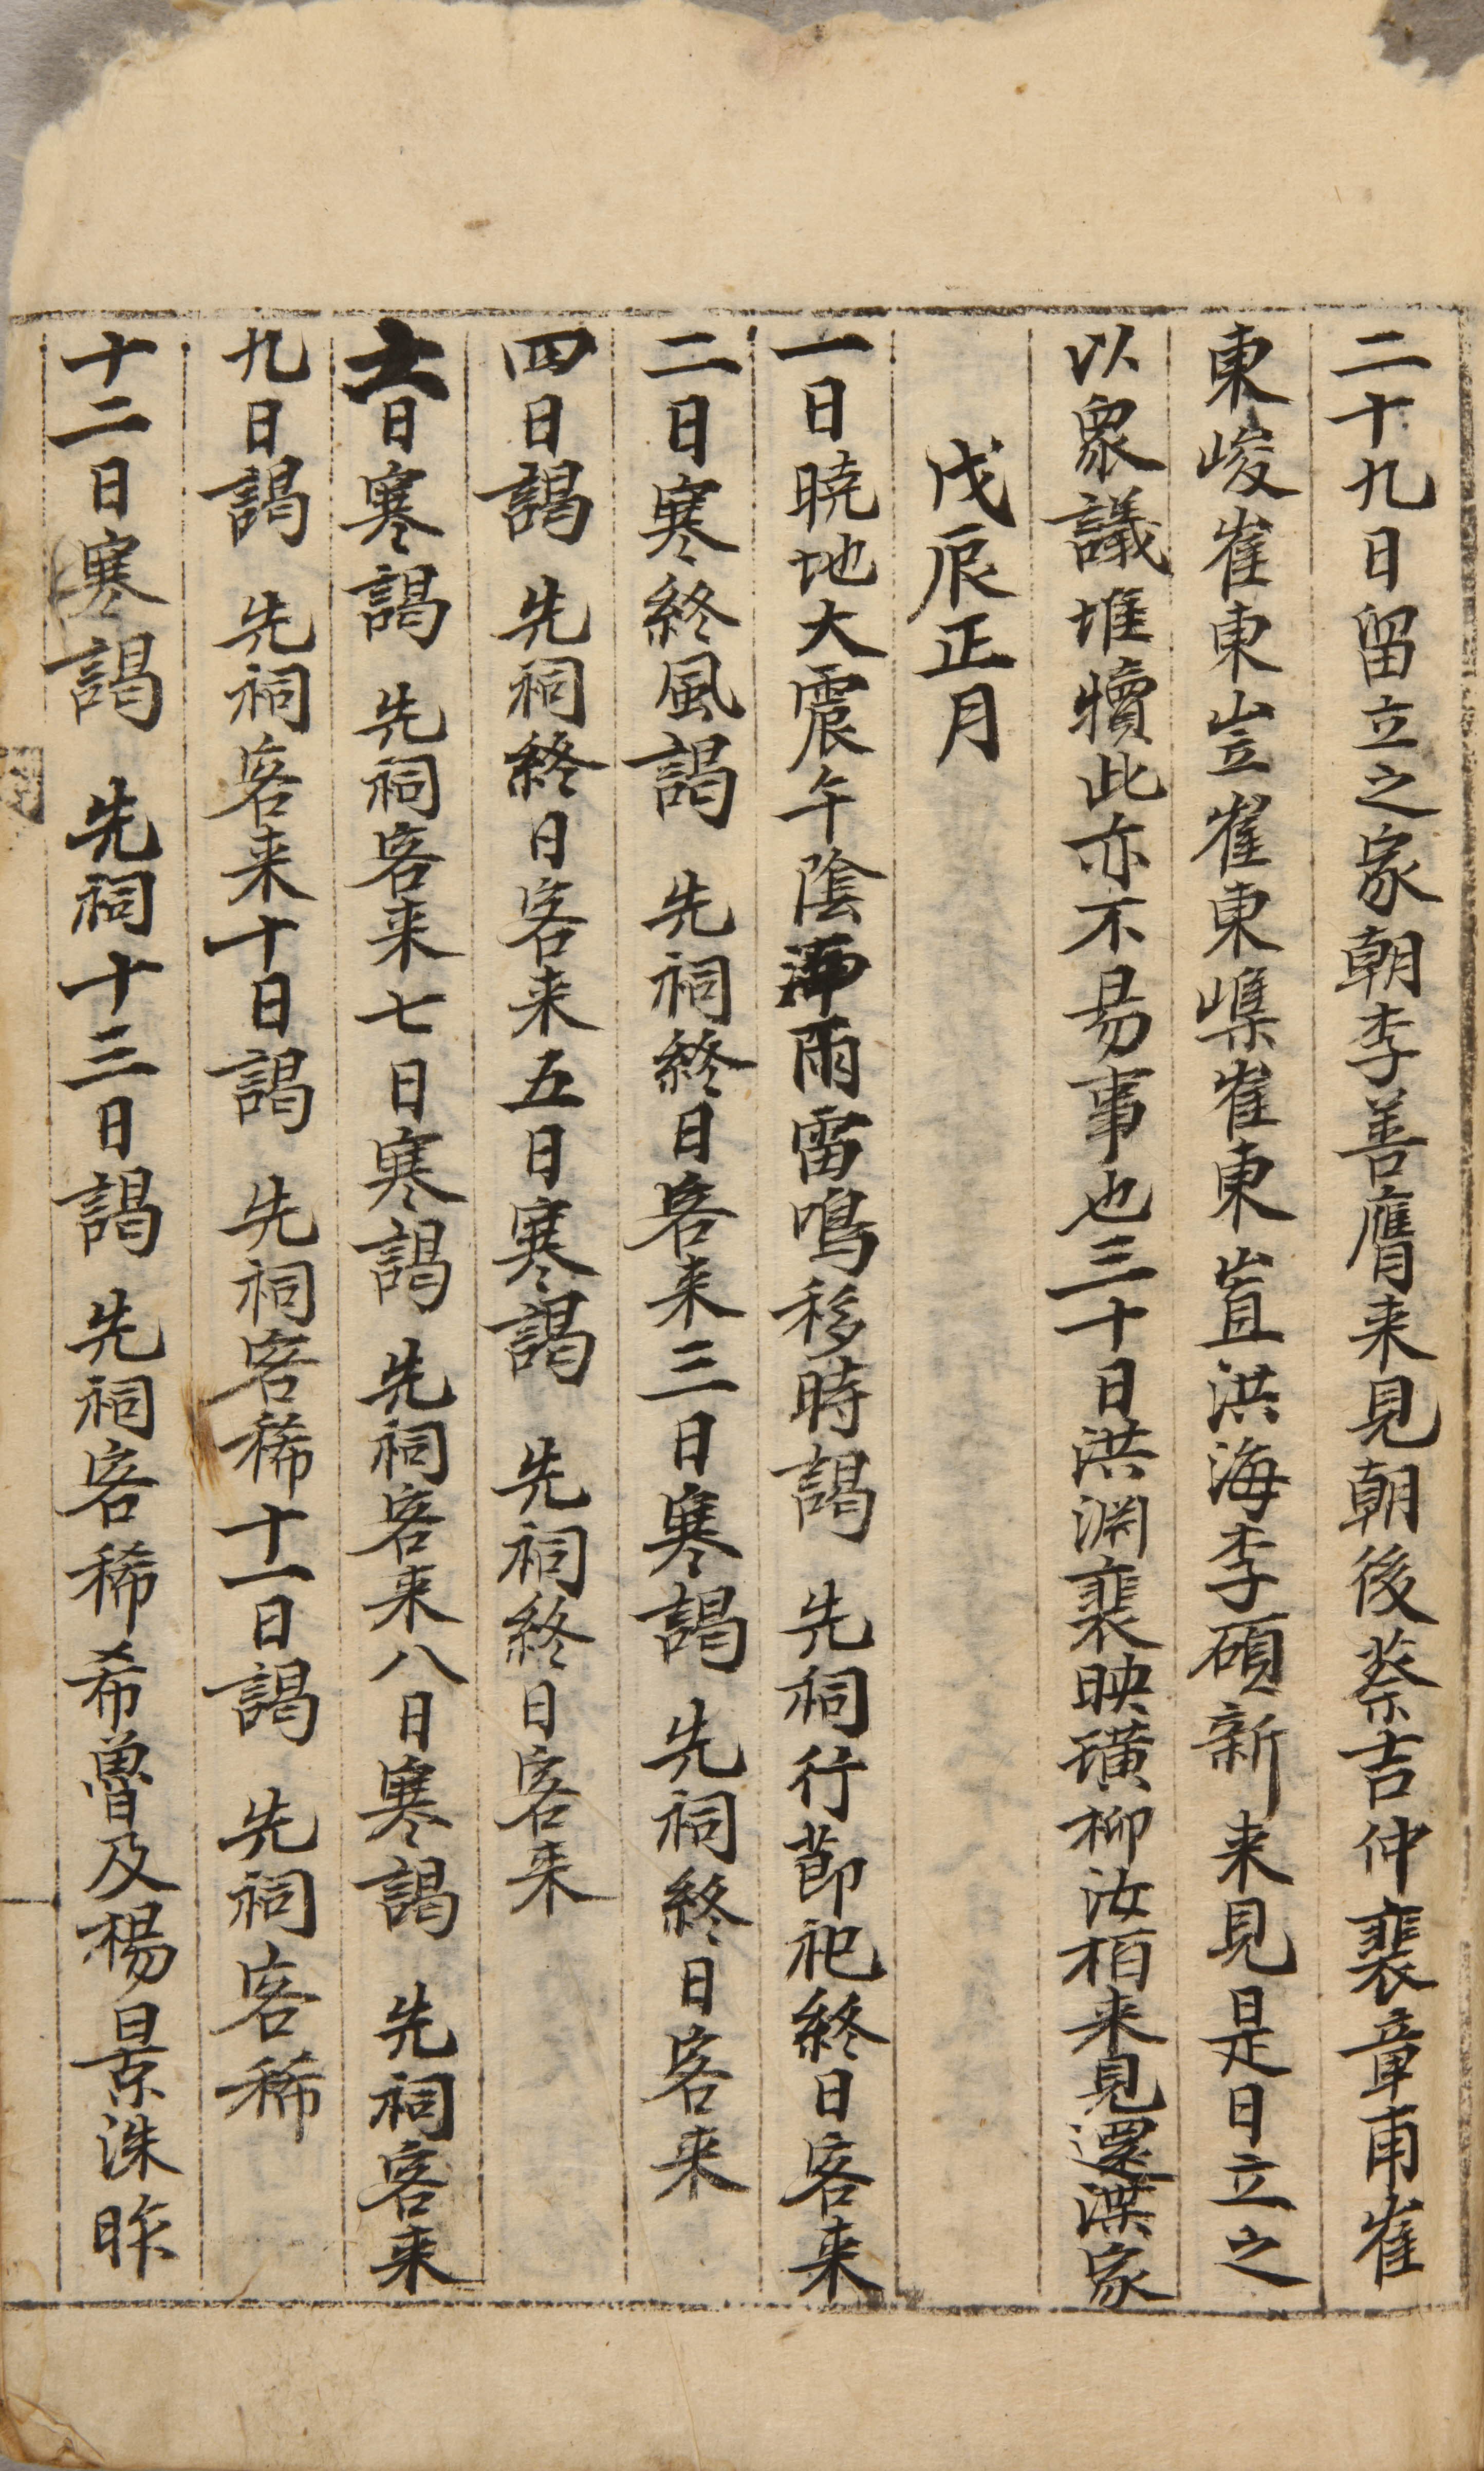 二十九日留立之家朝李善膺来見朝後蔡吉仲裵章甫崔
東峻崔東岦崔東㠎崔東㠪洪海李碩新来見是日立之
以衆議堆犢此亦不易事也三十日洪淵裵映璜柳汝栢来見還渫家
戊辰正月
一日暁地大震午陰沛雨雷鳴移時謁 先祠行莭祀終日客来
二日寒終風謁 先祠終日客来三日寒謁 先祠終日客来
四日謁 先祠終日客来五日寒謁 先祠終日客来
六日寒謁 先祠客来七日寒謁 先祠客来八日寒謁 先祠客来
九日謁 先祠客来十日謁 先祠客稀十一日謁 先祠客稀
十二日寒謁 先祠十三日謁 先祠客稀希魯及楊景洙昨